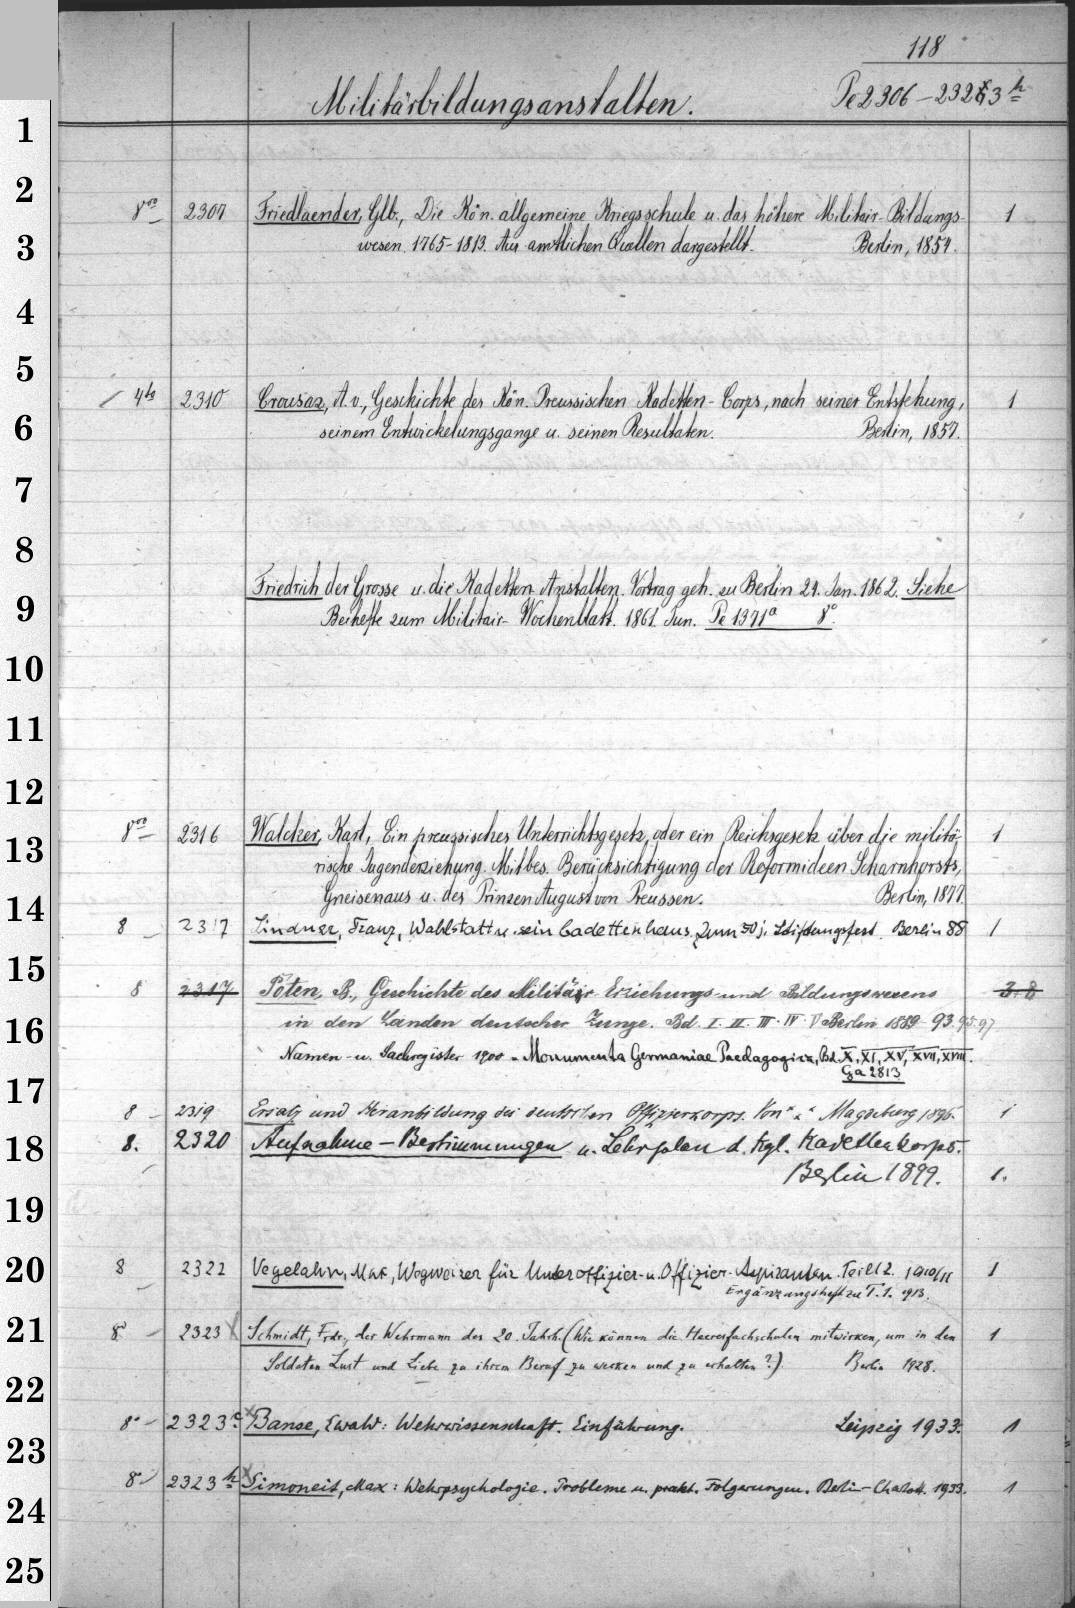 118
Militärbildungsanstalten. Pe 2306-2323 h
1
2
8vo 2307 Friedlaender, Glb., Die Kön. allgemeine Kriegsschule u. das höhere Militair-Bildungs- 1
3
wesen. 1765-1813. Aus amtlichen Quellen dargestellt. Berlin, 1854.
4
5
4to 2310 Crousaz, A. v., Geschichte des Kön. Preussischen Kadetten-Corps, nach seiner Entstehung, 1
6
seinem Entwickelungsgange u. seinen Resultaten. Berlin, 1857.
7
8
Friedrich der Grosse u. die Kadetten Anstalten. Vortrag geh. zu Berlin 24. Jan. 1862. Siehe
9
Beihefte zum Militair-Wochenblatt. 1861. Jun. Pe 1371a 8o.
10
11
12
8vo 2316 Walcker, Karl, Ein preussisches Unterrichtsgesetz, oder ein Reichsgesetz über die militä- 1
13
rische Jugenderziehung. Mit bes. Berücksichtigung der Reformideen Scharnhorsts,
14
Gneisenaus u. des Prinzen August von Preussen. Berlin, 1877.
8 2317 Lindner, Franz, Wahlstatt u. sein Cadettenhaus. Zum 50j. Stiftungsfest. Berlin 88 1
15
8 2317 Poten, B., Geschichte des Militär-Erziehungs- und Bildungswesens 3. 8
16
in den Landen deutscher Zunge. Bd. I. II. III. IV. V Berlin 1889-93. 95. 97
Namen- u. Sachregister 1900 = Monumenta Germaniae Paedagogica, Bd. X, XI, XV, XVII, XVIII.
Ga 2813
17
8 2319 Ersatz und Heranbildung des deutschen Offizierkorps. Von * * * Magdeburg 1896. 1
18
8. 2320 Aufnahme-Bestimmungen u. Lehrplan d. Kgl. Kadettenkorps.
Berlin 1899. 1.
19
20
8 2322 Vogelahn, Max, Wegweiser für Unteroffizier- u. Offizier-Aspiranten. Teil 1 2. 1910/11 1
Ergänzungsheft zu T. 1. 1913.
21
8 2323 Schmidt, Frdr., der Wehrmann des 20. Jahrh. (Wie können die Heeresfachschulen mitwirken, um in den 1
Soldaten Lust und Liebe zu ihrem Beruf zu wecken und zu erhalten?). Berlin 1928.
22
8o 2323 c Banse, Ewald: Wehrwissenschaft. Einführung. Leipzig 1933. 1
23
8o 2323 h Simoneit, Max: Wehrpsychologie. Probleme u. prakt. Folgerungen. Berlin-Charlott. 1933. 1
24
25